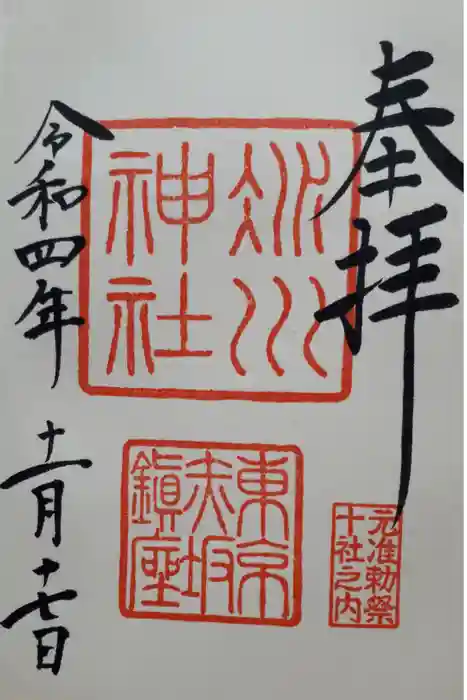 奉拝
氷川
神社
東京
赤坂
鎮座
元准勅祭
十社之内
令和四年
十一月十七日